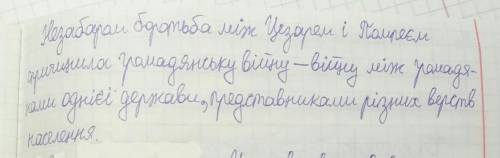 Незабаром боротьба між Цезарем і Помпеєм
спричинила громадянську війну — війну між громадя-
нами однієї держави, представниками різних верств
населення.